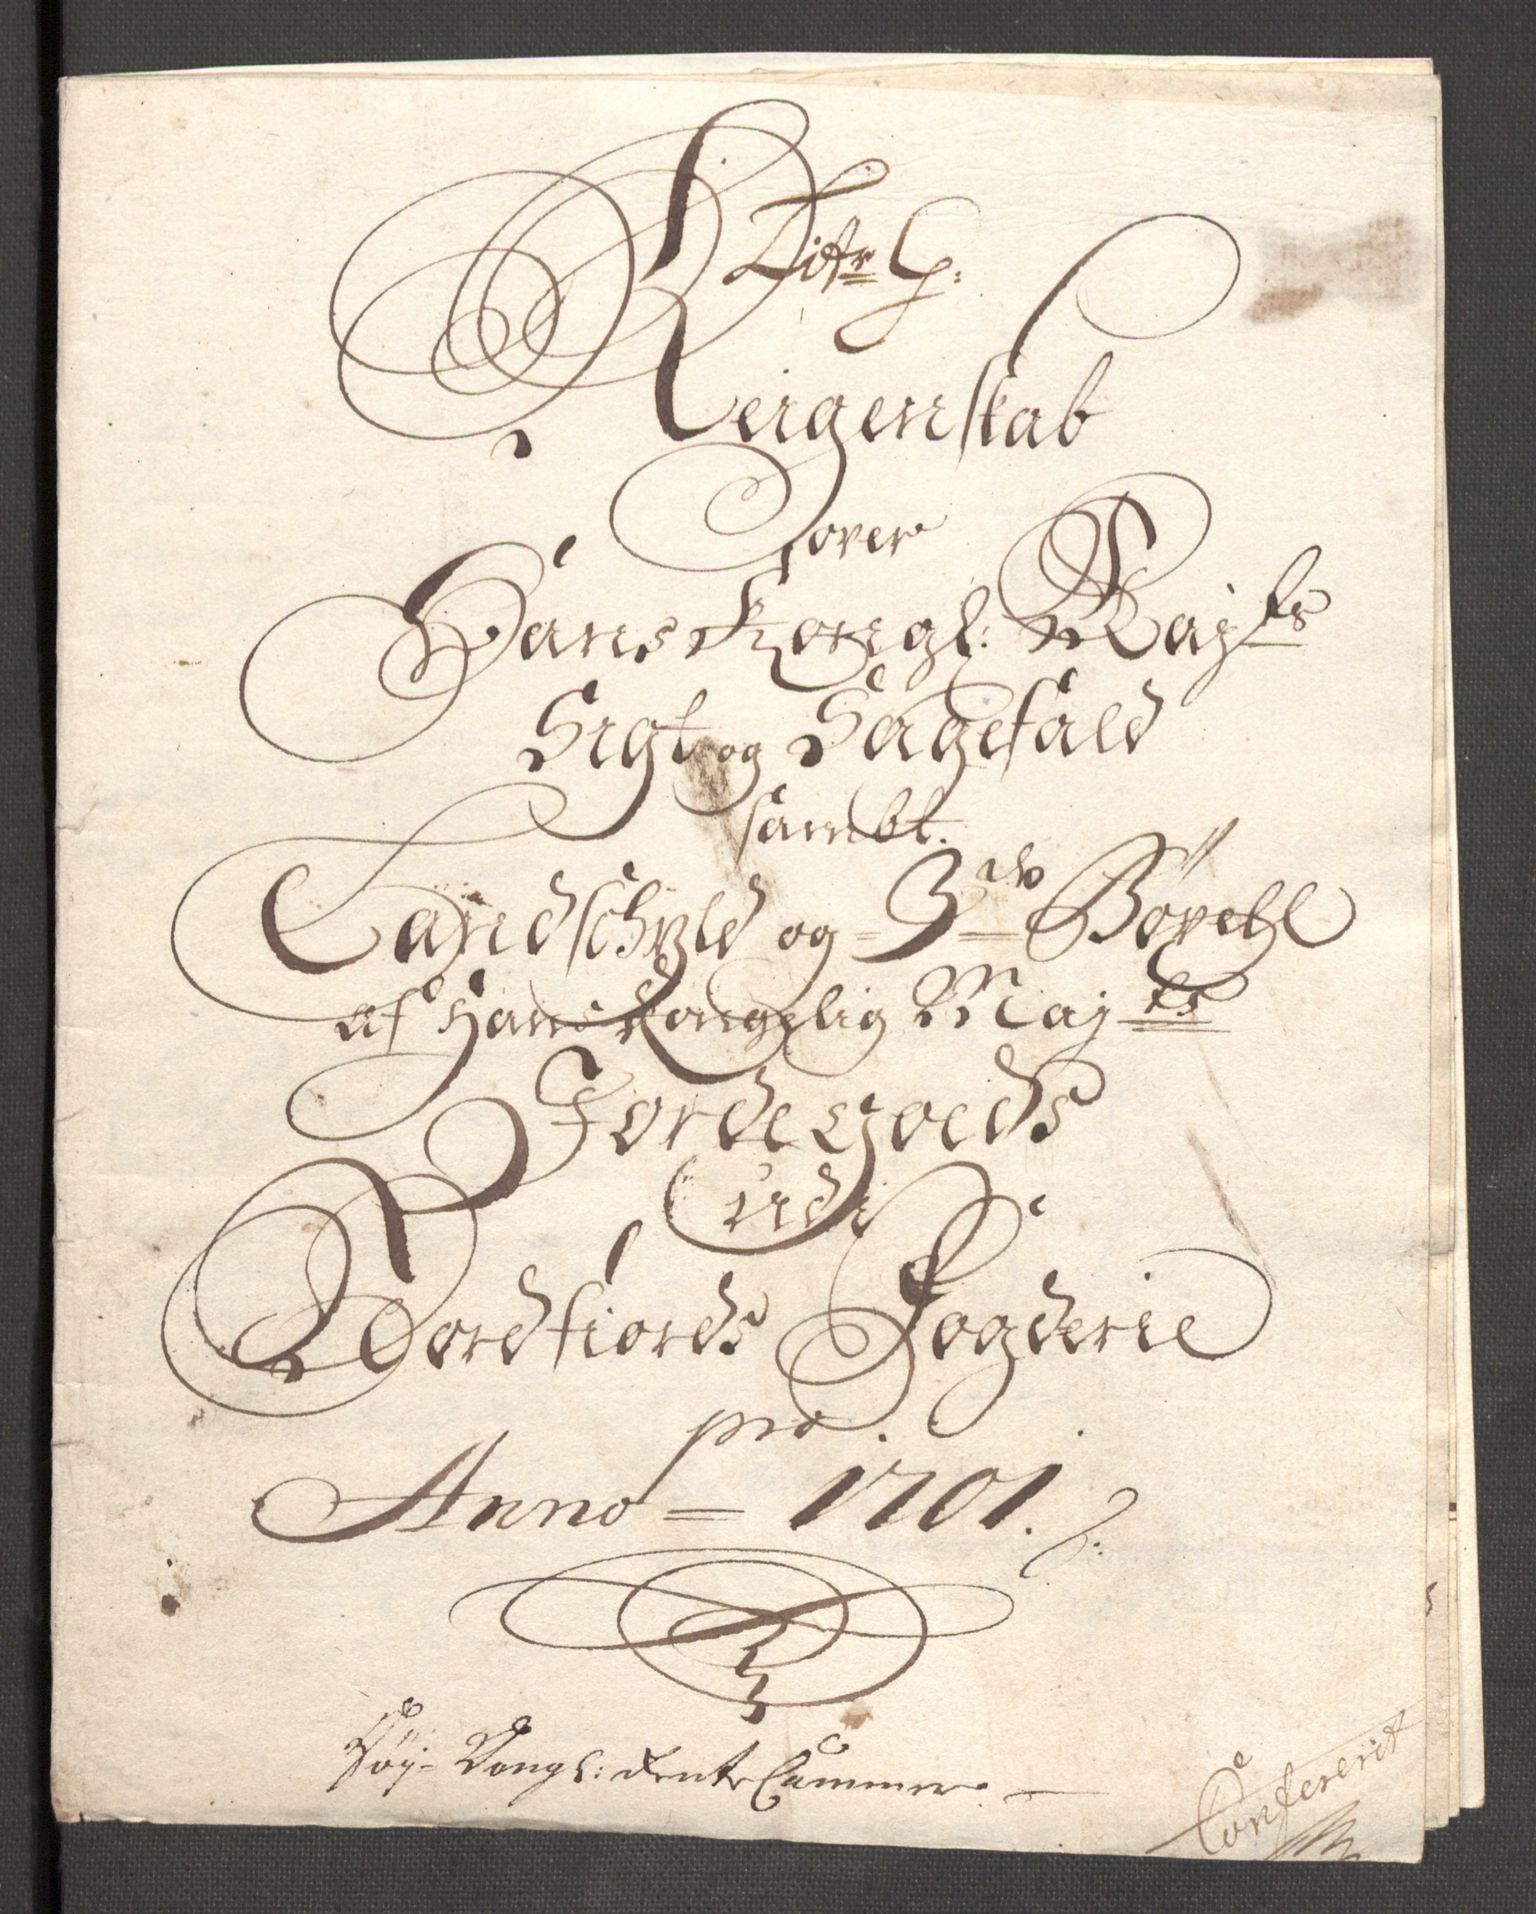 Litr G:
Reigenskab
over
Hans Kongl: Majts
Sigt og Sagefald
sambt.
Landschyld og 3de Bøxell
af Hans Kongelig Majts
Jordegoeds
udi
Nordfiords Fogderie
pro.
Anno = 1701.
Høy- Kongl: Rente Cammer.
Confererit